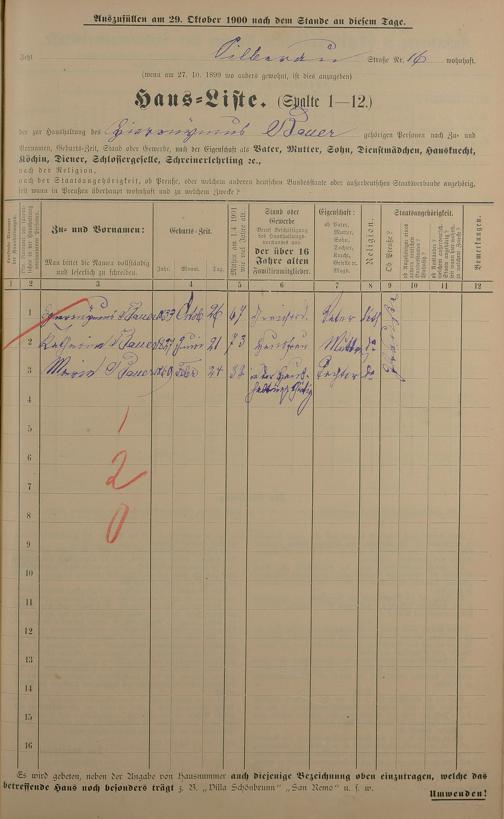 Auszufüllen am 29. Oktober 1900 nach dem Stande an diesem Tage.
Jetzt Silberau Straße Nr. 16 wohnhaft.
(wenn am 27. 10. 1899 wo anders gewohnt, ist dies anzugeben)
Haus-Liste. (Spalte 1—12.)
der zur Haushaltung des Hieronymus Bauer gehörigen Personen nach Zu- und
Vornamen, Geburts-Zeit, Stand oder Gewerbe, nach der Eigenschaft als Vater, Mutter, Sohn, Dienstmädchen, Hausknecht,
Köchin, Diener, Schlossergeselle, Schreinerlehrling ec.,
nach der Religion,
nach der Staatsangehörigkeit, ob Preuße, oder welchem anderen deutschen Bundesstaate oder außerdeutschen Staatsverbande angehörig,
seit wann in Preußen überhaupt wohnhaft und zu welchem Zwecke?
Zu- und Vornamen:
Man bittet die Namen vollständig
und leserlich zu schreiben.
Geburts-Zeit.
Jahr. Monat. Tag.
Mithin am 1.4.1901
wie viel Jahre alt.
Stand oder
Gewerbe
des Haushaltungs-
vorstandes und
der über 16
Jahre alten
Familienmitglieder.
Eigenschaft:
ob Vater,
Mutter,
Sohn,
Tochter,
Knecht,
Gehilfe u.
Magd.
Religion.
Staatsangehörigkeit.
Ob Preuße?
Bemerkungen.
1 2 3 4 5 6 7 8 9 10 11 12
1 Hieronymus Bauer Octob 26 67 Vater kath
2 Katharina Bauer 1827 Juni 21 73 Hausfrau Mutter do
3 Maria Bauer 1869 Febr 24 32 in der Haus- Tochter do
haltung thätig
Preuße
4
5
6
7
8
9
10
11
12
13
14
15
16
1
2
0
Es wird gebeten, neben der Angabe von Hausnummer auch diejenige Bezeichnung oben einzutragen, welche das
betreffende Haus noch besonders trägt z. B. „Villa Schönbrunn" „San Remo" u. s. w.
Umwenden!